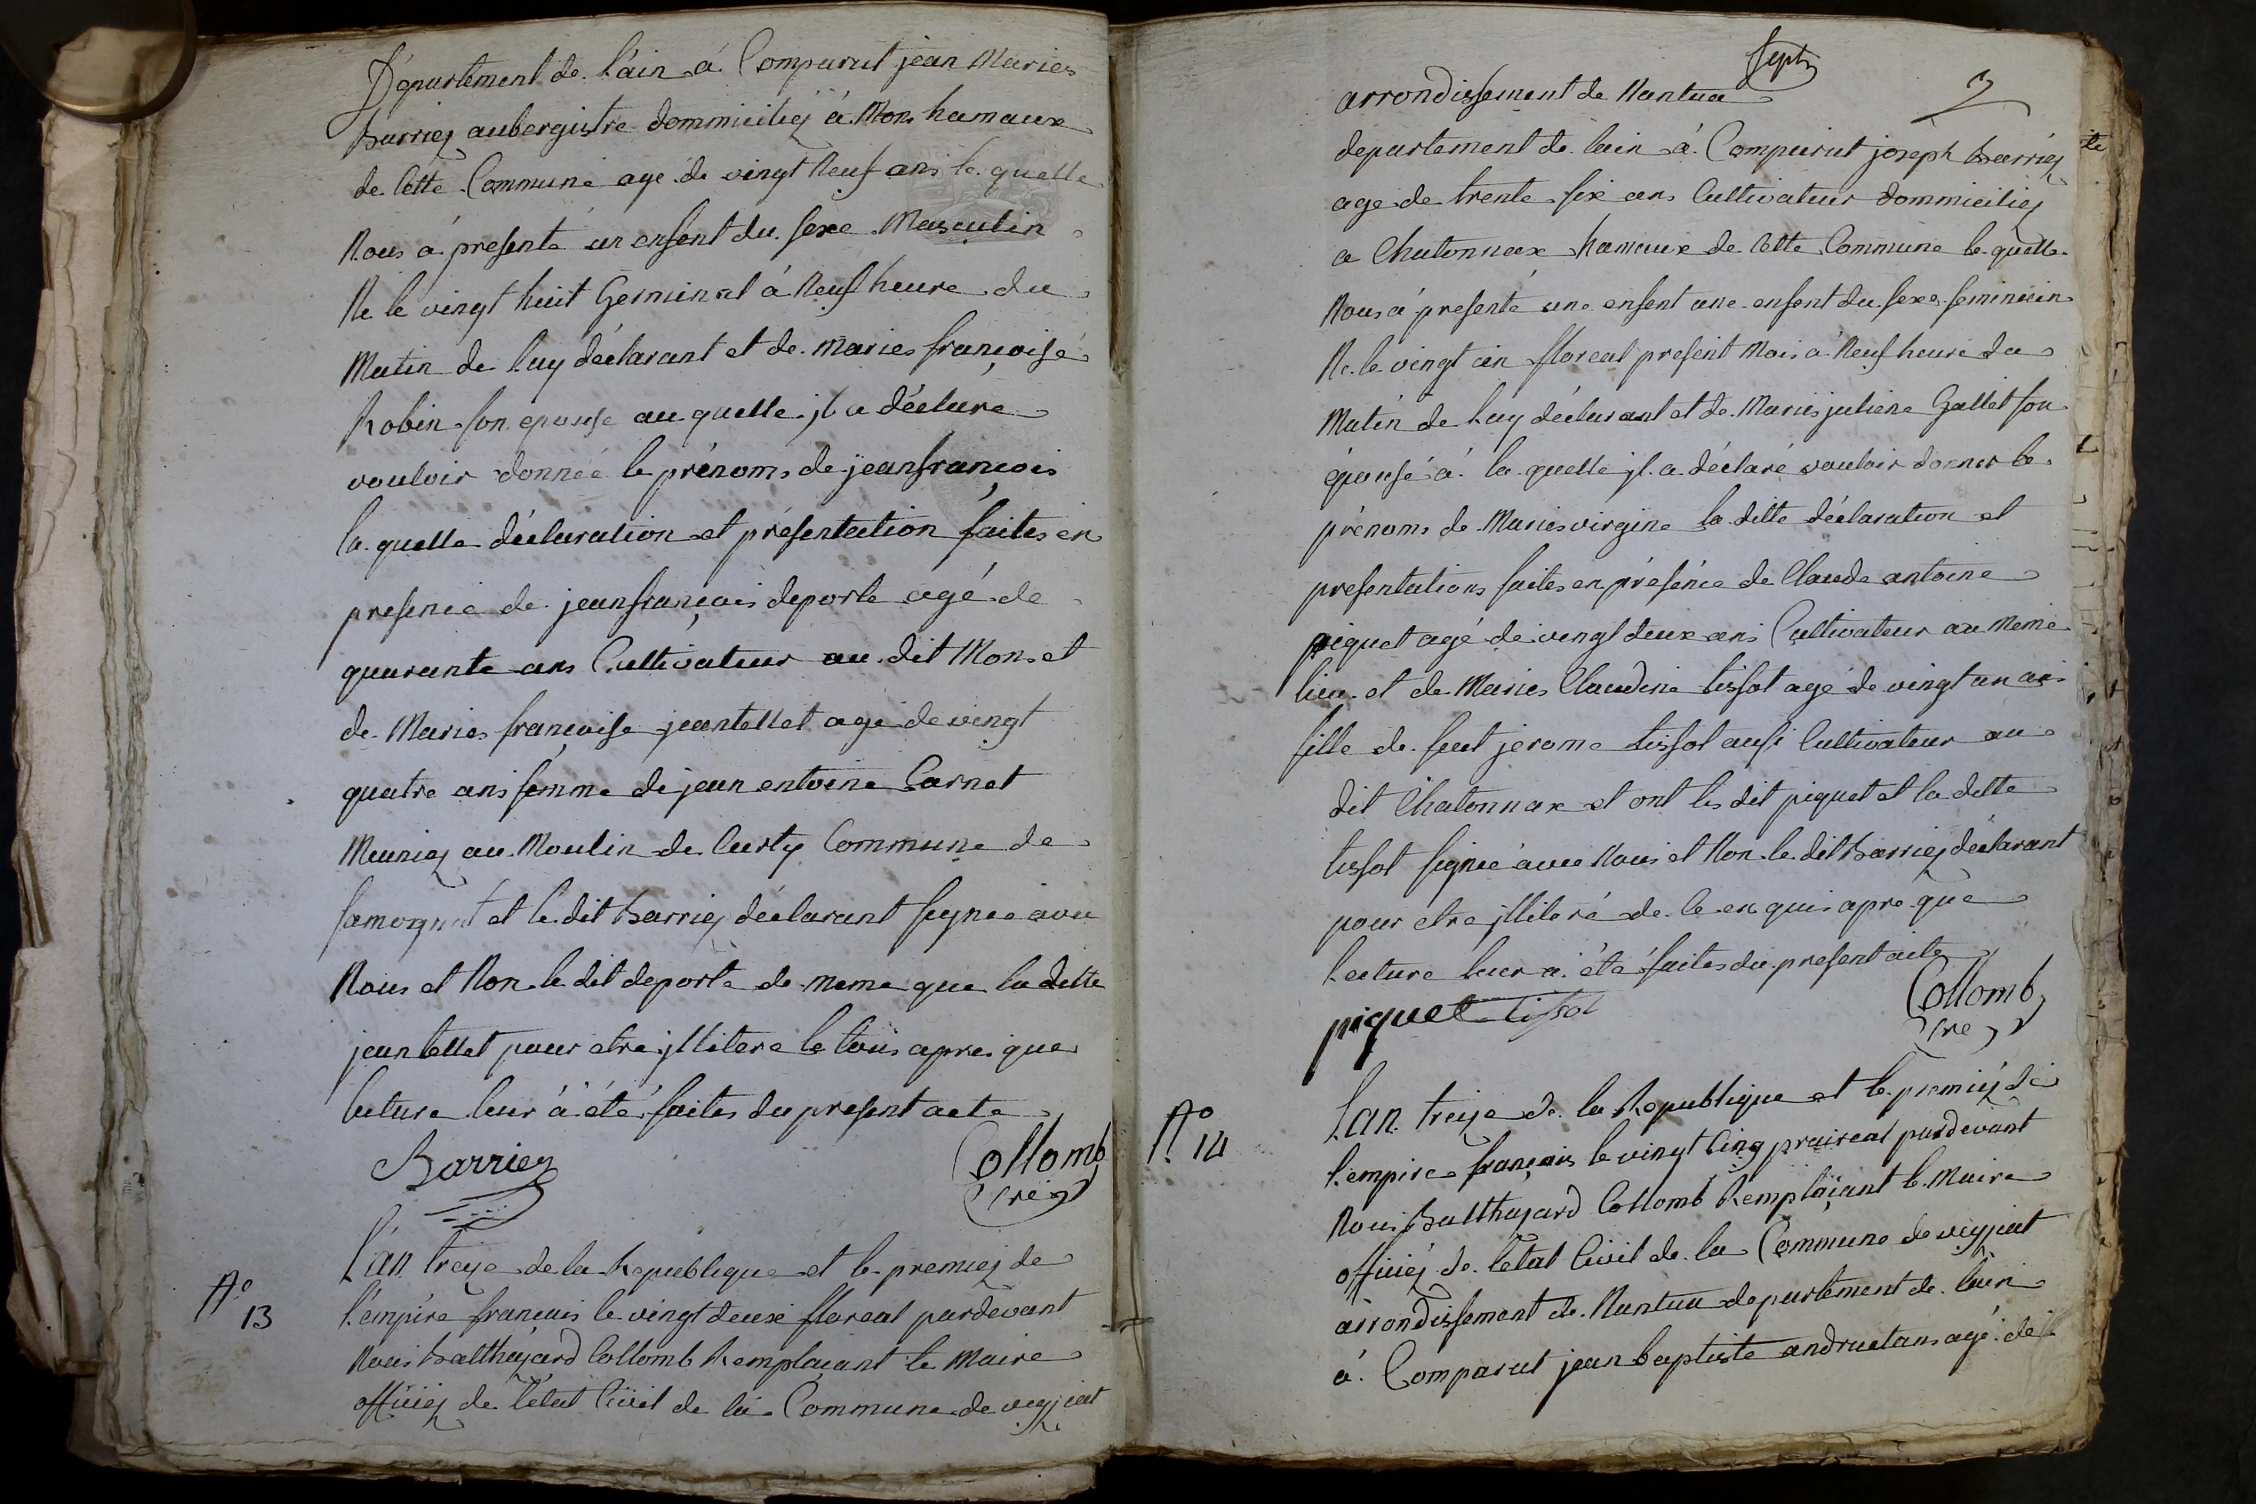 Département de l'ain à Comparut jean Maries
Barriez aubergistre dommiciliez à Mons hamaux
de Cette Commune age de vingt Neuf ans le quelle
Nous à presenté un enfent du sexe Masculin
Ne le vingt huit Germinal à Neuf heure du
Matin de luy déclarant et de Maries françoise
Robin son epouse au quelle jl a déclare
vouloir donnée le prénoms de jeanfrançois
la quelle déclaration et présentation faites en
presence de jeanfrançois deporte agé de
quarante ans Cultivateur au dit Mons et
de Maries françoise jeantellet age de vingt
quatre ans femme de jean entoine Carnet
Meuniez au Moulin de Curty Commune de
samognat et le dit Barriez déclarant signee avec
Nous et Non le dit deporte de meme que la ditte
jeantellet pour etre jllitere le tous apres que
lecture leur à été faites du present acte
Barriez Collomb
N°
13
L'an treize de la Republique et le premiez de
l'empire francais le vingt deuxe floreal pardevant
Nous Balthazard Collomb Remplaçant le Maire
officiez de l'état Civil de la Commune de veyziat
Sept
7
arrondissement de Nantua
departement de lain à Comparut joseph Barriez
age de trente six ans Cultivateur dommiciliez
a Chatonnax hamaux de Cette Commune le quelle
Nous à presenté une enfent une enfent du sexe feminin
Ne le vingt un floreal present Mois a Neuf heure du
Matin de luy déclarant et de Maries juliene Gallet son
épouse à la quelle jl a déclaré vouloir donner le
prénoms de Maries virgine la ditte déclaration et
presentations faites en présence de Claude antoine
piquet agé de vingt deux ans Cultivateur au Meme
lieu et de Maries Claudine tissot age de vingt un ans
fille de feut jerome tissot aussi Cultivateur au
dit Chatonnax et ont les dit piquet et la ditte
tissot signée avec Nous et Non le dit Barriez déclarant
pour etre jlliteré de ce en quis apre que
lecture leur à été faites du present acte
piquet tissot Collomb
N°
14
L'an treize de la Republique et le premiez de
l'empire français le vingt Cinq praireal pardevant
Nous Balthazard Collomb Remplaçant le Maire
officiez de l'état Civil de la Commune de veyziat
arrondissement de Nantua departement de lain
à Comparut jean baptiste andruetans agé de